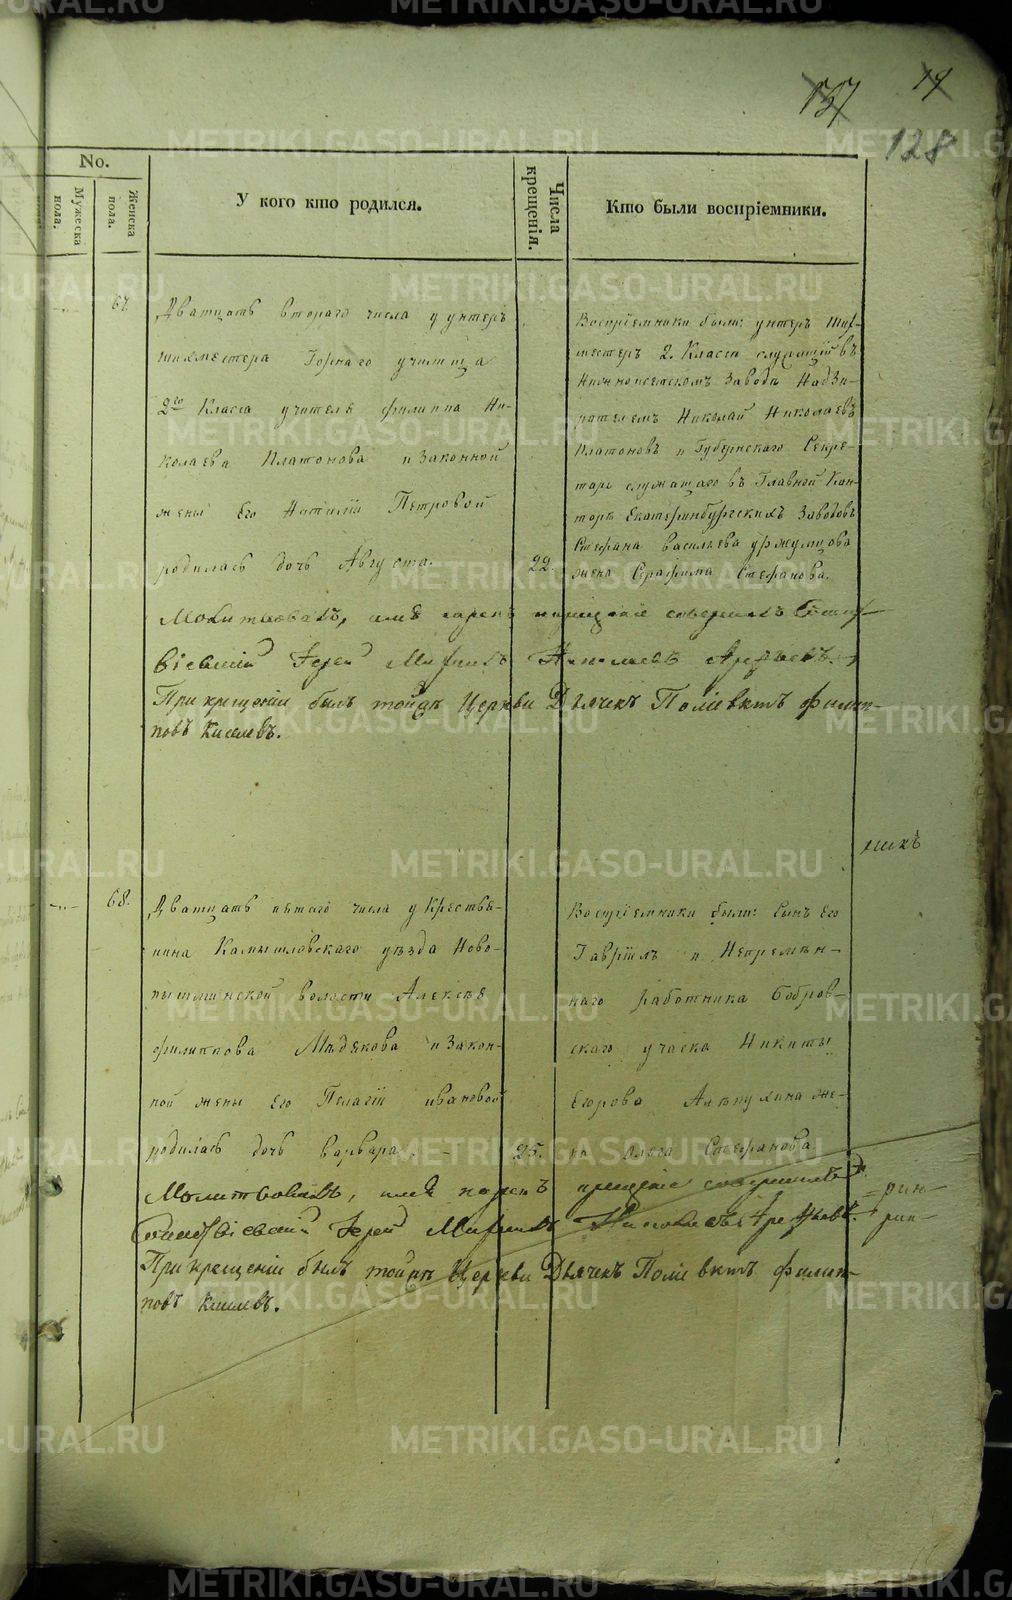 137 19
128
No.
Мужеска пола.
Женска пола.
У кого кто родился.
Числа крещенія.
Кто были воспріемники.
67.
Дватцать втораго числа у унтеръ
шихместера Горнаго училища
2го Класса учителя Филиппа Ни-
колаева Платонова и Законной
жены Его Наталіи Петровой
родилась дочь Августа.
22.
Воспріемники были: унтеръ Ших-
местеръ 2. Класса служащій въ
Нижноисетскомъ Заводѣ Надзи-
рателемъ Николай Николаевъ
Платоновъ и Губернскаго Секре-
таря служащаго въ Главной Кон-
торѣ Екатеринбургскихъ Заводовъ
Стефана Васильева Уржумцова
жена Серафима Стефанова.
Молитвовалъ, имя нарекъ крещеніе совершилъ
Іерей Николаевъ
При крещеніи былъ тойже Церкви Дьячекъ Поліевктъ Филип-
повъ Киселевъ.
никъ
68.
Дватцать пятаго числа у Крестья-
нина Камышловскаго уѣзда Ново-
пышминской волости Алексѣя
Филиппова Мѣдякова и Закон-
ной жены Его Пелагіи Ивановой
родилась дочь Варвара.
25.
Воспріемники были: Сынъ Его
Гавріилъ и Непремѣн-
наго работника Бобров-
скаго учаска Никиты
Егорова же-
на Стефанова
Молитвовалъ, имя нарекъ крещеніе совершилъ
Іерей Николаевъ
При крещеніи былъ тойже Церкви Дьячекъ Поліевктъ Филип-
повъ Киселевъ.
METRIKI.GASO-URAL.RU